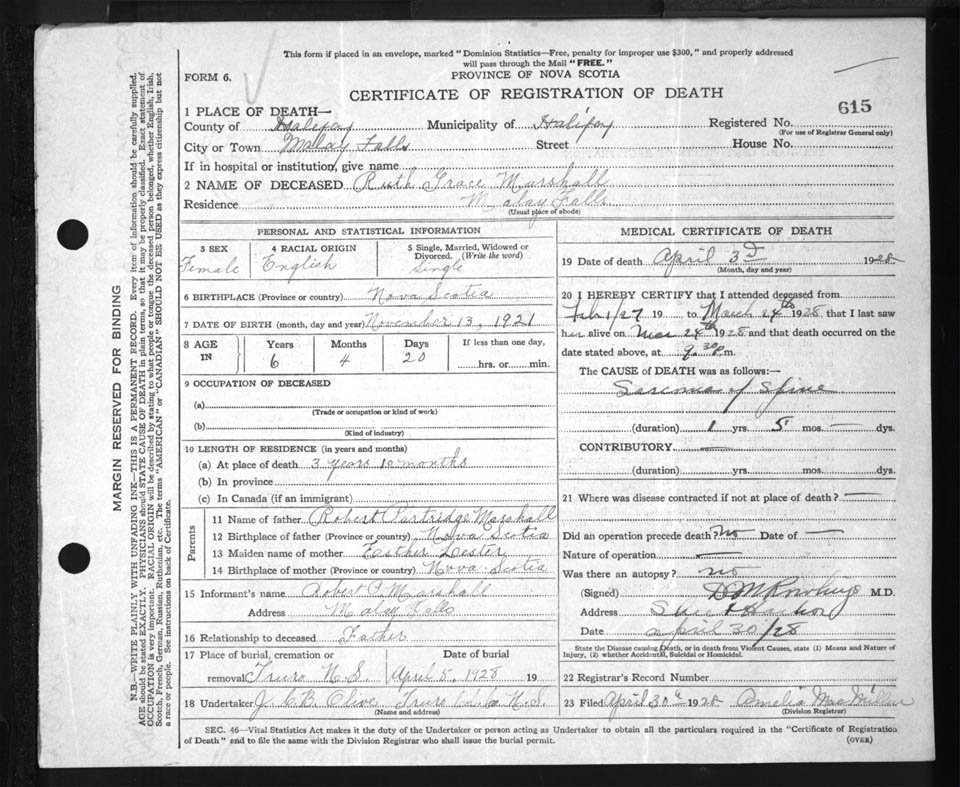 This form if placed in an envelope, marked "Dominion Statistics—Free, penalty for improper use $300," and properly addressed
will pass through the Mail "FREE."
FORM 6.
PROVINCE OF NOVA SCOTIA
CERTIFICATE OF REGISTRATION OF DEATH
615
1 PLACE OF DEATH—
County of Halifax Municipality of Halifax Registered No.
(For use of Registrar General only)
City or Town Malay Falls Street House No.
If in hospital or institution, give name
2 NAME OF DECEASED Ruth Grace Marshall
Residence Malay Falls
(Usual place of abode)
PERSONAL AND STATISTICAL INFORMATION
3 SEX 4 RACIAL ORIGIN 5 Single, Married, Widowed or Divorced. (Write the word)
Female English Single
6 BIRTHPLACE (Province or country) Nova Scotia
7 DATE OF BIRTH (month, day and year) November 13, 1921
8 AGE IN Years Months Days If less than one day,
6 4 20 hrs. or min.
9 OCCUPATION OF DECEASED
(a)
(Trade or occupation or kind of work)
(b)
(Kind of industry)
10 LENGTH OF RESIDENCE (in years and months)
(a) At place of death 3 years 10 months
(b) In province
(c) In Canada (if an immigrant)
Parents
11 Name of father Robert Partridge Marshall
12 Birthplace of father (Province or country) Nova Scotia
13 Maiden name of mother Esther Lester
14 Birthplace of mother (Province or country) Nova Scotia
15 Informant's name Robert P. Marshall
Address Malay Falls
16 Relationship to deceased Father
17 Place of burial, cremation or Date of burial
removal Truro N.S. April 5, 1928 19
18 Undertaker J. C. B. Olive Truro N.S.
(Name and address)
MEDICAL CERTIFICATE OF DEATH
19 Date of death April 3d 1928
(Month, day and year)
20 I HEREBY CERTIFY that I attended deceased from
Feb 1/27 19 to March 24th 1928 that I last saw
her alive on Mar 24th 1928 and that death occurred on the
date stated above, at 9.30 p.m.
The CAUSE OF DEATH was as follows:—
Sarcoma of Spine
(duration) 1 yrs. 5 mos. — dys.
CONTRIBUTORY
(duration) yrs. mos. dys.
21 Where was disease contracted if not at place of death? —
Did an operation precede death? No Date of —
Nature of operation —
Was there an autopsy? no
(Signed) D M Rowlings M.D.
Address Sheet Harbor
Date April 30/28
State the Disease causing Death, or in death from Violent Causes, state (1) Means and Nature of
Injury, (2) whether Accidental, Suicidal or Homicidal.
22 Registrar's Record Number
23 Filed April 30th 1928 Amelia MacMillan
(Division Registrar)
SEC. 46—Vital Statistics Act makes it the duty of the Undertaker or person acting as Undertaker to obtain all the particulars required in the "Certificate of Registration
of Death" and to file the same with the Division Registrar who shall issue the burial permit.
(OVER)
MARGIN RESERVED FOR BINDING
N.B.—WRITE PLAINLY WITH UNFADING INK—THIS IS A PERMANENT RECORD. Every item of information should be carefully supplied.
AGE should be stated EXACTLY. PHYSICIANS should STATE CAUSE OF DEATH in plain terms, so that it may be properly classified. Exact statement of
OCCUPATION is very important. RACIAL ORIGIN will be described by stating to what people or tongue the deceased person belonged, whether English, Irish,
Scotch, French, German, Russian, Ruthenian, etc. The terms "AMERICAN" or "CANADIAN" SHOULD NOT BE USED as they express citizenship but not
a race or people. See instructions on back of Certificate.